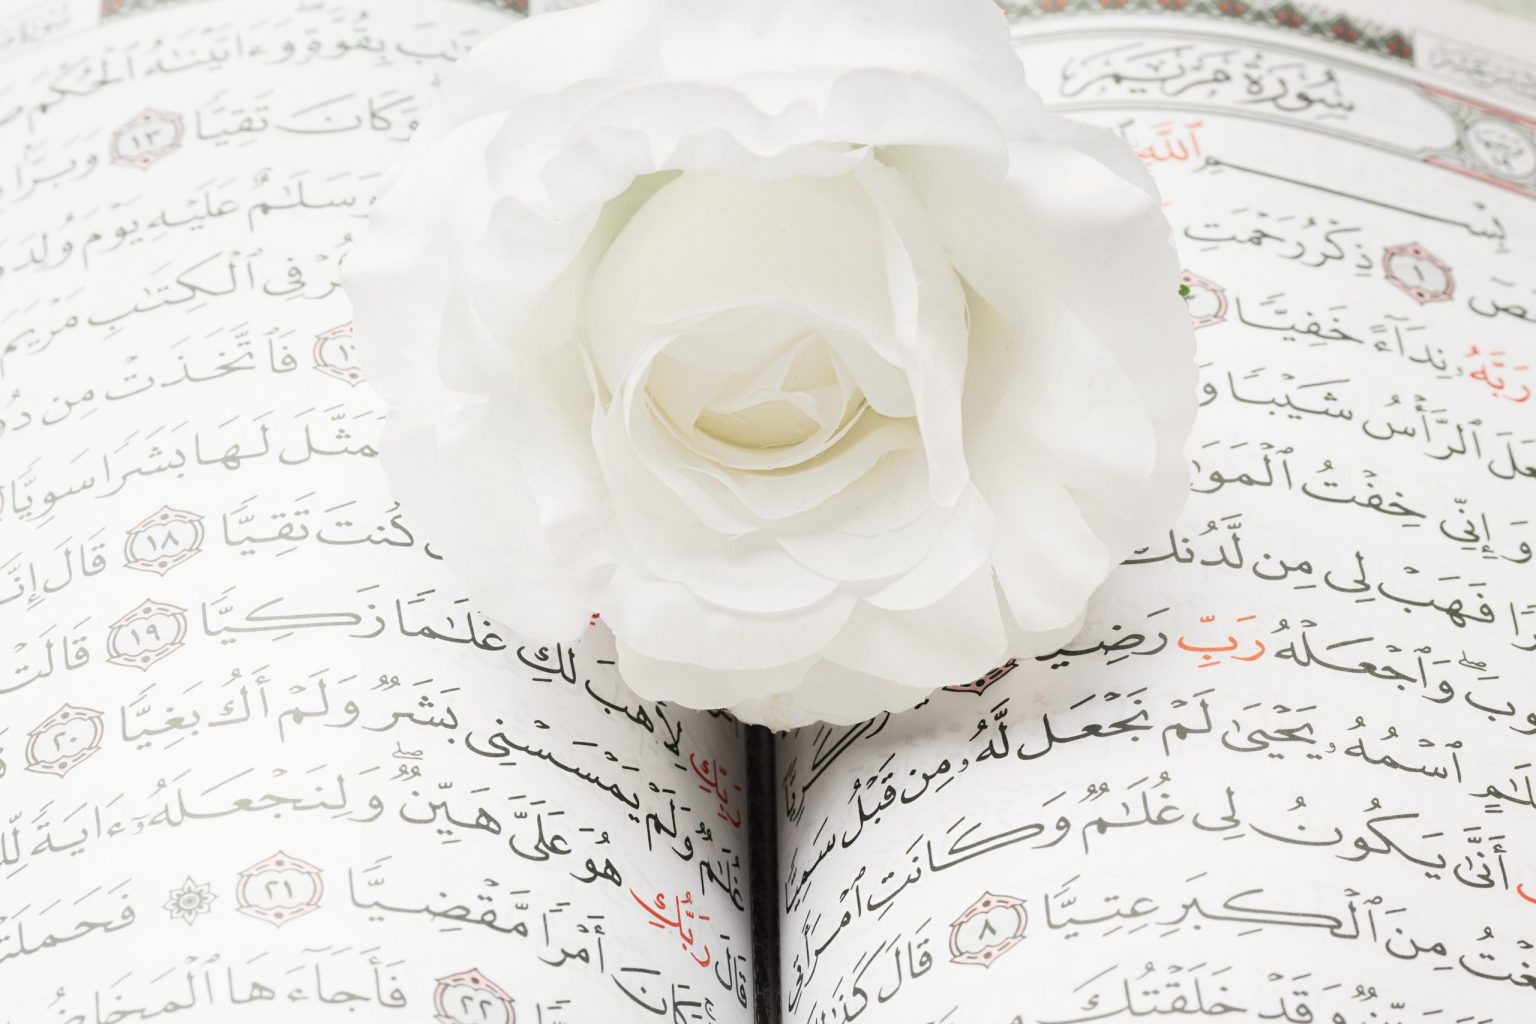 سُورَةُ مَرْيَمَ
بِسْمِ ٱللَّهِ
١ ذِكْرُ رَحْمَتِ
رَبَّهُۥ نِدَآءً خَفِيًّا
ٱلرَّأْسُ شَيْبًا
وَإِنِّى خِفْتُ
فَهَبْ لِى مِن لَّدُنكَ
وَٱجْعَلْهُ رَبِّ رَضِيًّا
ٱسْمُهُۥ يَحْيَىٰ لَمْ نَجْعَل لَّهُۥ مِن قَبْلُ سَمِيًّا
أَنَّىٰ يَكُونُ لِى غُلَٰمٌ وَكَانَتِ ٱمْرَأَتِى
مِنَ ٱلْكِبَرِ عِتِيًّا ٨ قَالَ كَذَٰلِكَ
وَقَدْ خَلَقْتُكَ
بِقُوَّةٍ وَءَاتَيْنَٰهُ ٱلْحُكْمَ
وَكَانَ تَقِيًّا ١٣ وَبَرًّۢا
وَسَلَٰمٌ عَلَيْهِ يَوْمَ وُلِدَ
فِى ٱلْكِتَٰبِ مَرْيَمَ
فَٱتَّخَذَتْ مِن
لَهَا بَشَرًا سَوِيًّا
كُنتَ تَقِيًّا ١٨ قَالَ إِنَّمَآ
رَبِّكِ لِأَهَبَ لَكِ غُلَٰمًا زَكِيًّا ١٩ قَالَتْ
غُلَٰمٌ وَلَمْ يَمْسَسْنِى بَشَرٌ وَلَمْ أَكُ بَغِيًّا ٢٠
قَالَ رَبُّكِ هُوَ عَلَىَّ هَيِّنٌ وَلِنَجْعَلَهُۥٓ ءَايَةً
وَكَانَ أَمْرًا مَّقْضِيًّا ٢١ فَحَمَلَتْهُ
٢٢ فَأَجَآءَهَا ٱلْمَخَاضُ